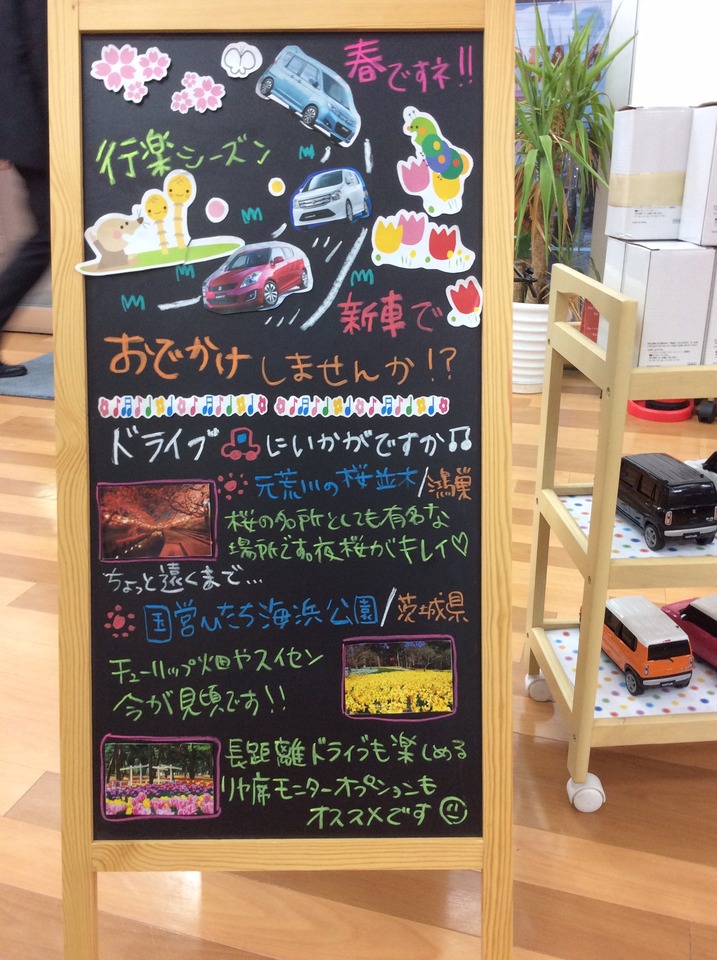 春ですネ!!
行楽シーズン
新車で
おでかけしませんか!?
ドライブにいかがですか♫
元荒川の桜並木/鴻巣
桜の名所としても有名な
場所です。夜桜がキレイ♡
ちょっと遠くまで…
国営ひたち海浜公園/茨城県
チューリップ畑やスイセン
今が見頃です!!
長距離ドライブも楽しめる
リヤ席モニターオプションも
オススメです